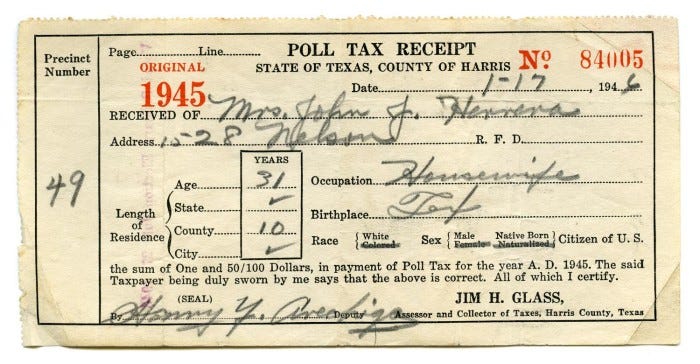 POLL TAX RECEIPT
STATE OF TEXAS, COUNTY OF HARRIS
Nº 84005
Precinct Number
49
Page Line
ORIGINAL
1945
Date 1-17 1946
RECEIVED OF Mrs. John J. Herrera
Address 1528 Nelson R. F. D.
YEARS
Length of Residence
Age 31
State ✓
County 10
City ✓
Occupation Housewife
Birthplace Tex
Race { White Colored Sex { Male Female { Native Born Naturalized } Citizen of U. S.
the sum of One and 50/100 Dollars, in payment of Poll Tax for the year A. D. 1945. The said
Taxpayer being duly sworn by me says that the above is correct. All of which I certify.
(SEAL)
JIM H. GLASS,
By Deputy Assessor and Collector of Taxes, Harris County, Texas